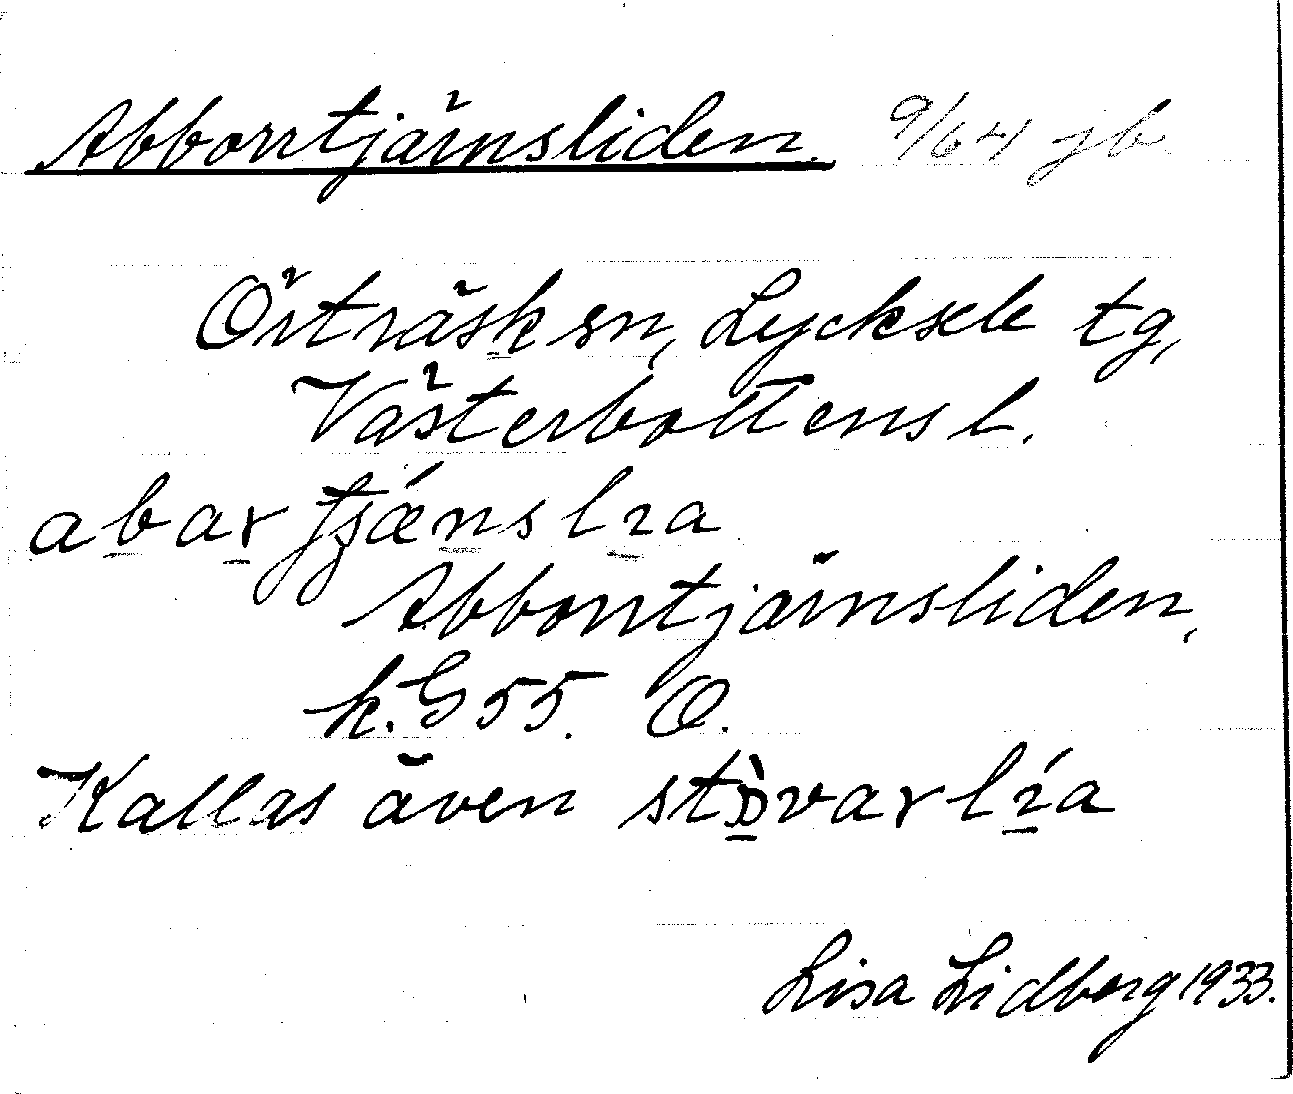 Abborrtjärnsliden. 9/64 jb
Örträsk sn, Lycksele tg,
Västerbottens l.
abar tjǽnslıa
Abborrtjärnsliden,
k. G 55. O.
Kallas även stòvarlía
Lisa Lidberg 1933.